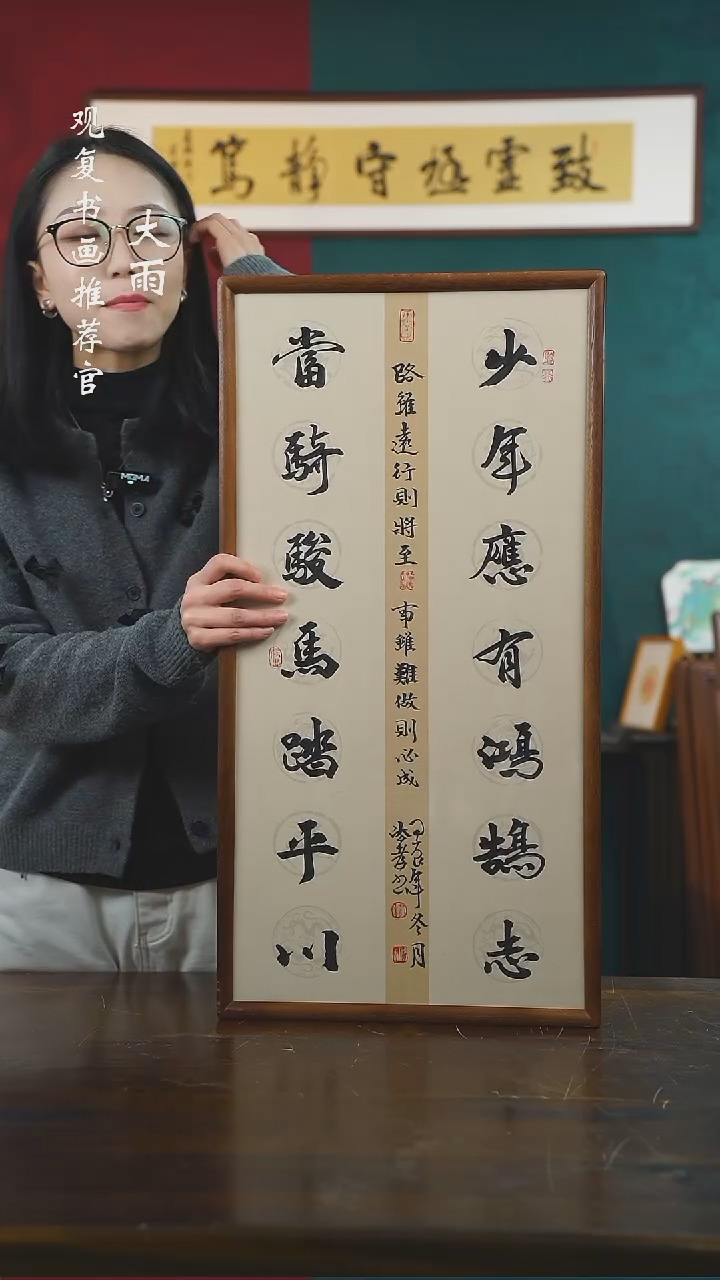 观复书画推荐官
大雨
致虚极守静笃
少年應有鴻鵠志
當騎駿馬踏平川
路雖遠行則將至
事雖難做則必成
甲辰年冬月
MOMA